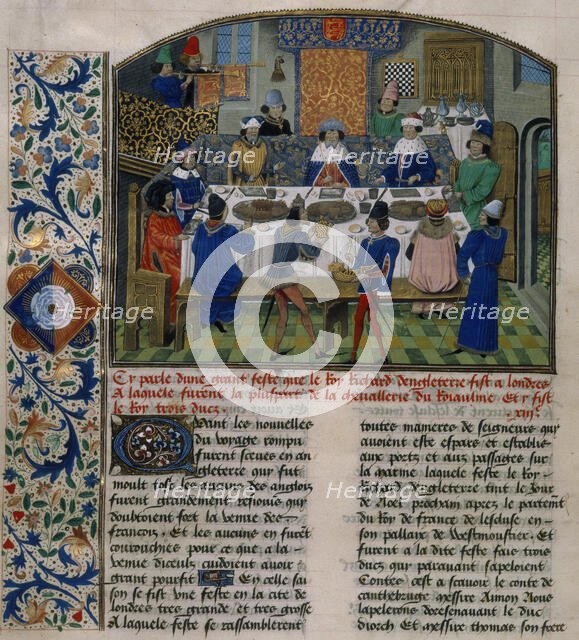 Cy parle dune grant feste que le Roy Richard dengleterre fist a londres
A laquele furent la pluspart de la chevallerie du Roiaulme Et y fist
le Roy trois ducz
xiii
Quant les nouvelles
du voyage rompu
furent sceues en an
gleterre qui fut
moult tost les cueurs des anglois
furent grandement resiouis qui
doubtoient fort la venue des
francois. Et les aucuns en furent
courouchies pour ce que a la
venue diceulz cuidoient avoir
grant pourfit En celle sai
son se fist une feste en la cite de
londres tres grande et tres grosse
A laquele feste se rassamblerent
toutes manieres de seigneurs quy
avoient este espars et establis
aux portz et aux passages sur
la marine laquele feste le Roy
Richard dengleterre tint le Jour
de Noel prochain apres le partement
du Roy de france de lescluse en
son pallaix de Westmoustier. Et
furent a la dite feste fais trois
ducz qui paravant sapeloient
Contes cest a scavoir le conte de
cantbebruge messire Aimon Nous
lapelerons doresenavant le duc
diorch Et messire thomas son frere
Heritage
Heritage
Heritage
Heritage
Heritage
Heritage
Heritage
Heritage
C